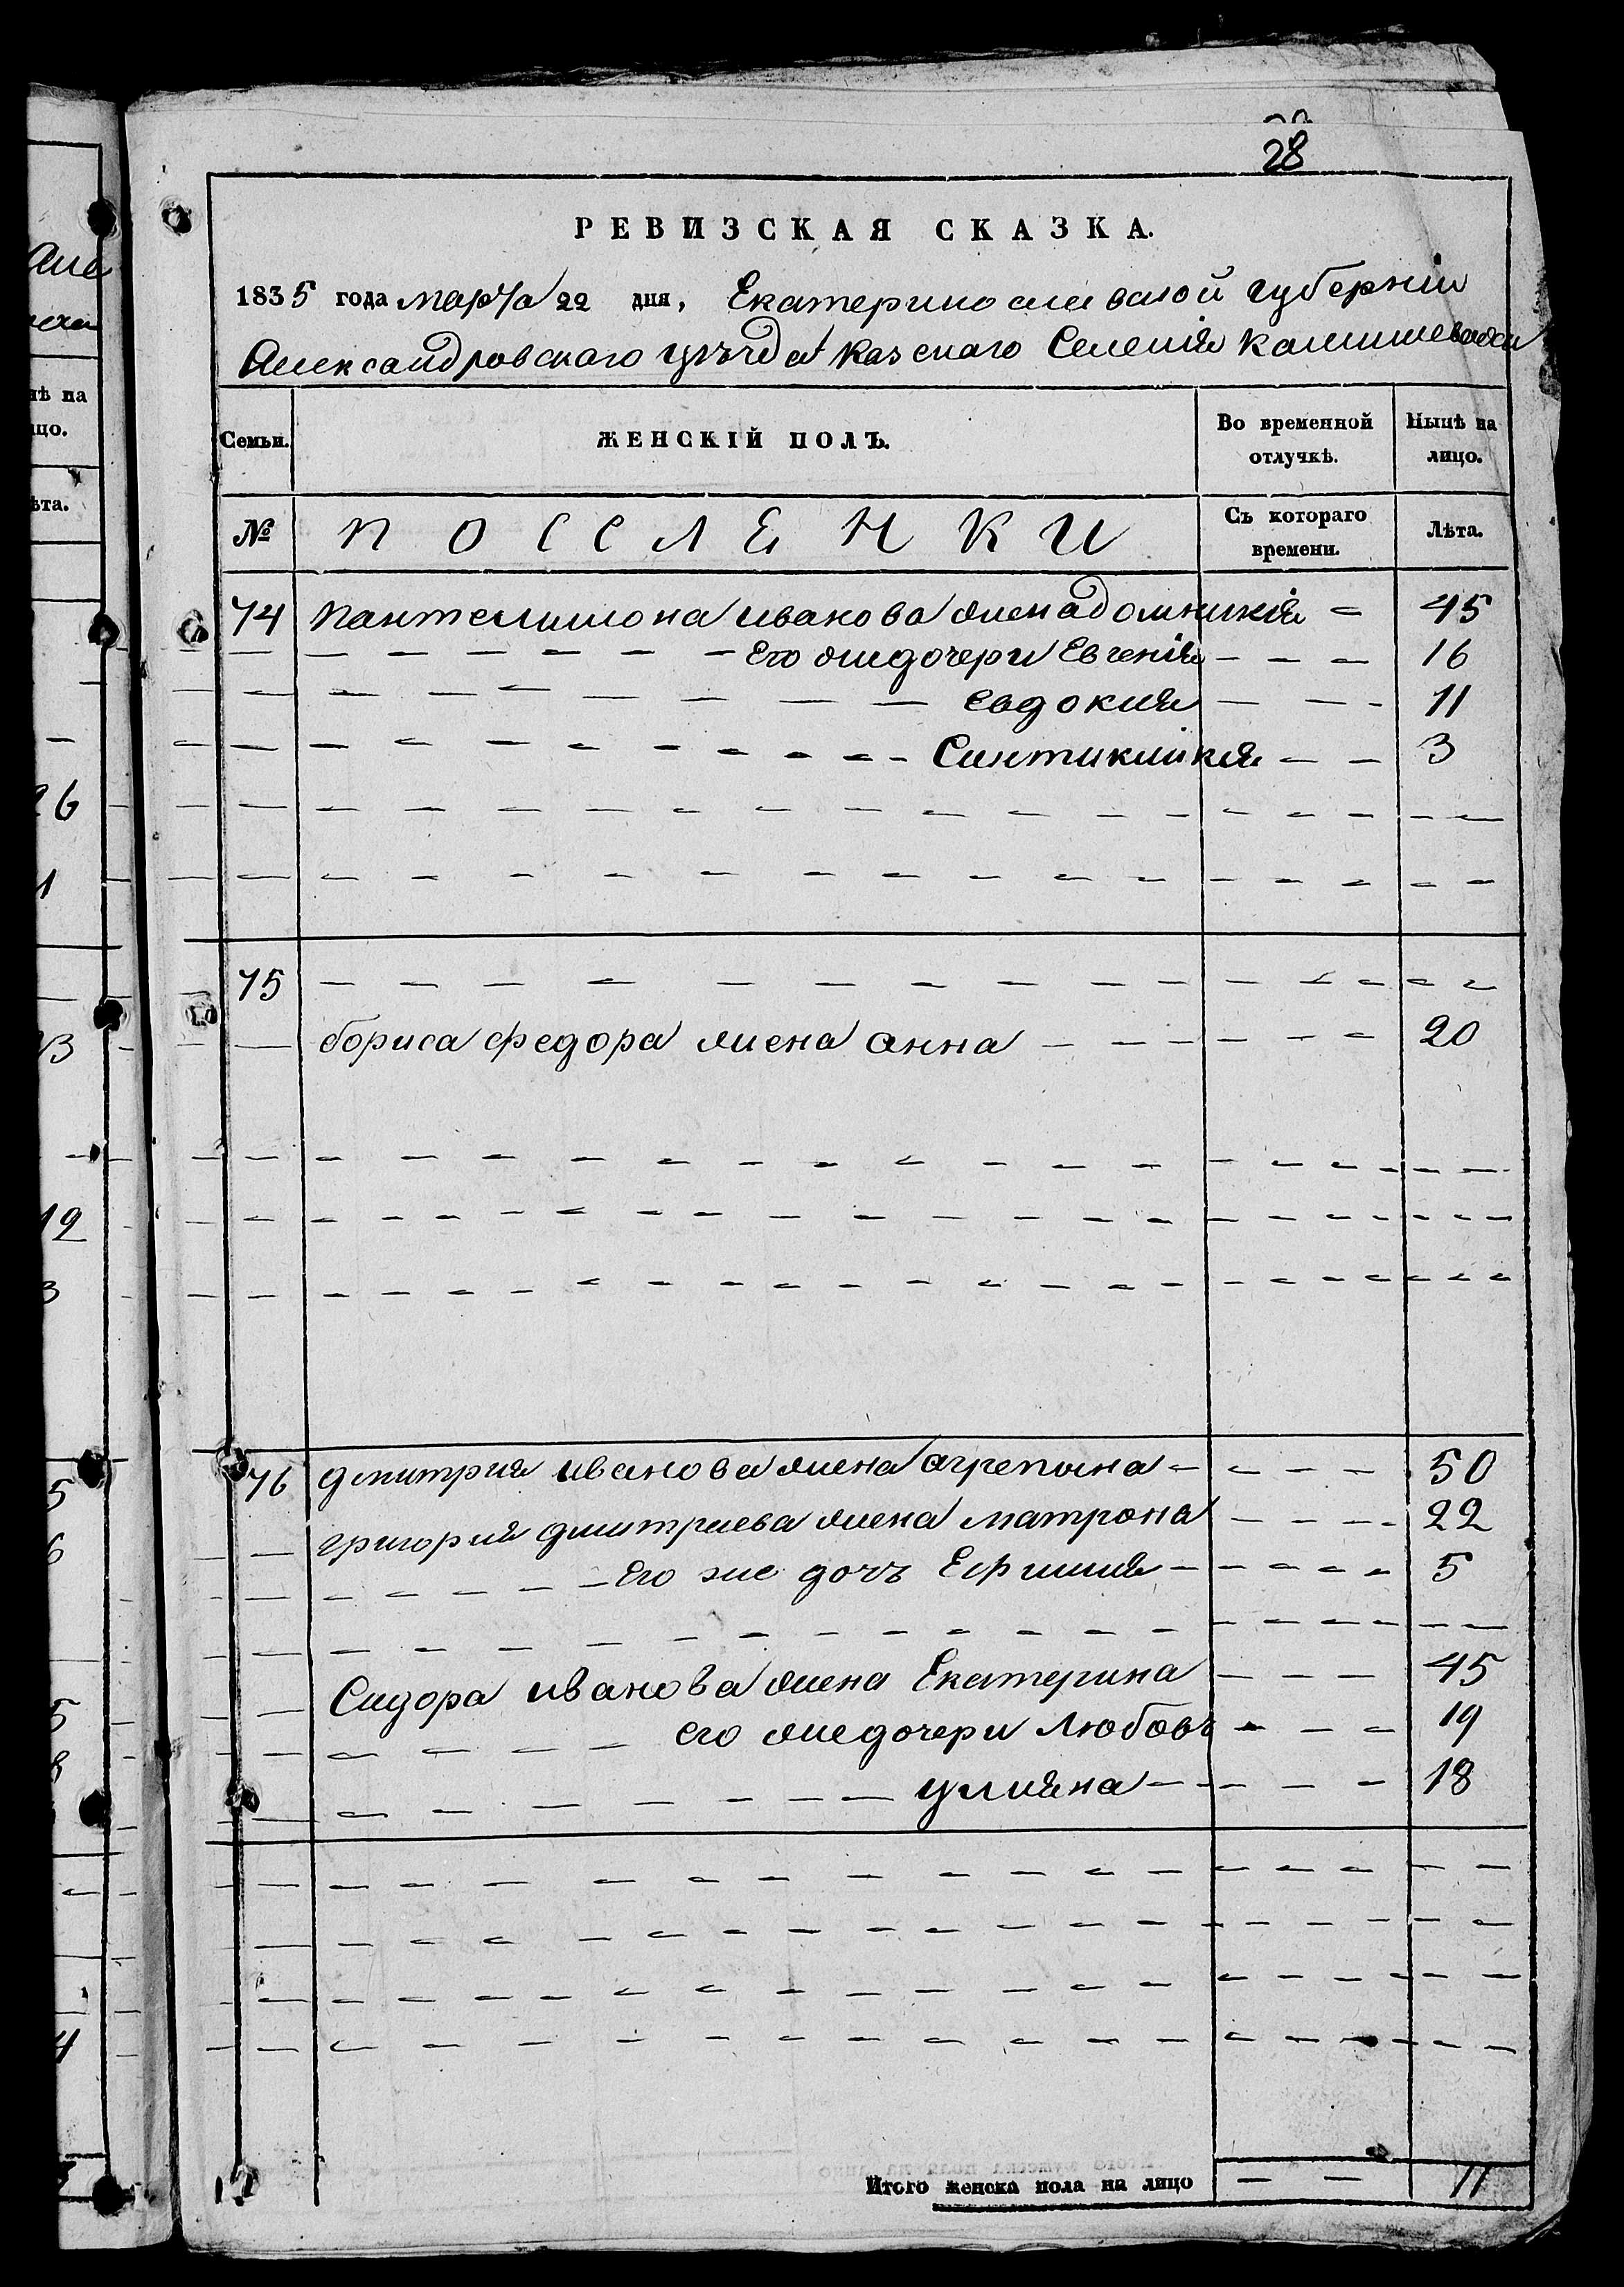 28
РЕВИЗСКАЯ СКАЗКА.
1835 года Марта 22 дня, Екатеринославской губерніи
Александровскаго уѣзда казенаго Селенія
Семьи. ЖЕНСКІЙ ПОЛЪ. Во временной отлучкѣ. Нынѣ на лицо.
№ ПОСЕЛЕНКИ Съ котораго времени. Лѣта.
74 Пантелимона иванова жена домникія 45
Его же дочери Евгенія 16
Евдокия 11
Синтикликия 3
75
бориса федора жена анна 20
76 дмитрия иванова жена агрепина 50
григория дмитриева жена матрона 22
Его же дочъ Ефимия 5
Сидора иванова жена Екатерина 45
его же дочери Любовъ 19
улияна 18
Итого женска пола на лицо 11